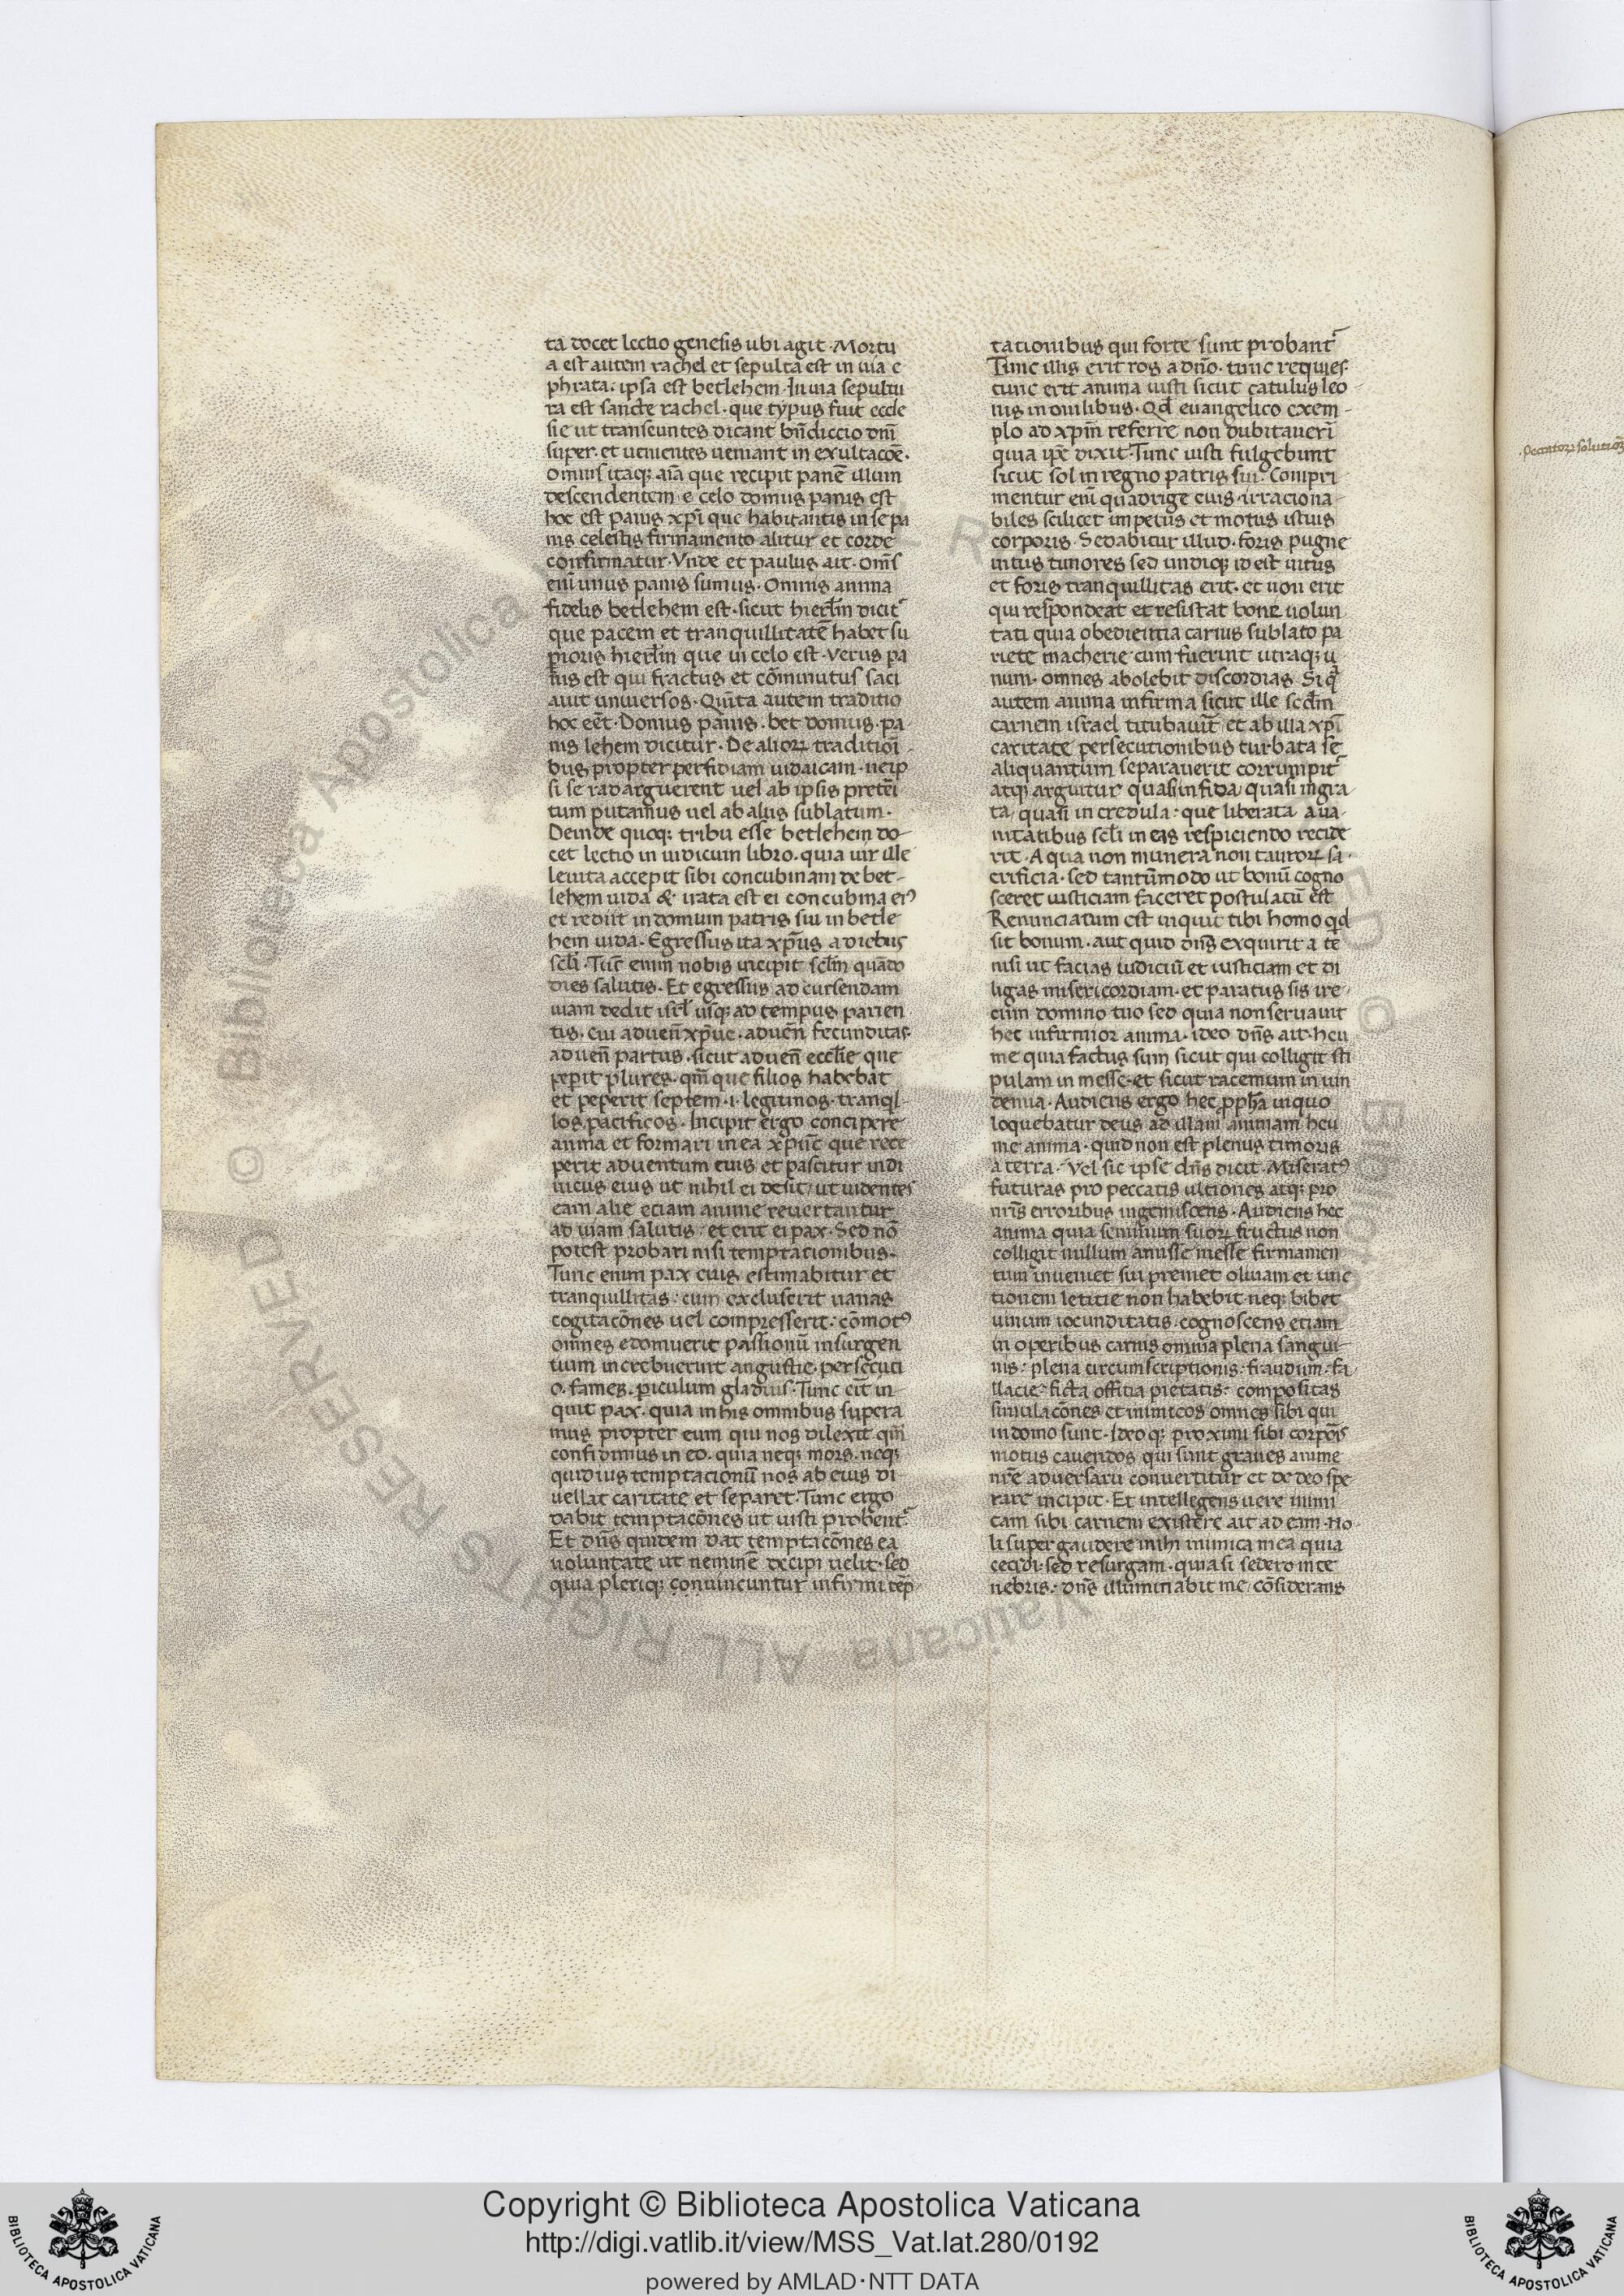 ta docet lectio genesis ubi agit · Mortu
a est autem rachel et sepulta est in uia e
phrata : ipsa est betlehem · In uia sepultu
ra est sancte rachel · que typus fuit eccle
sie ut transeuntes dicant bn̄diccio dn̄i
super · et uenientes ueniant in exultacōe ·
omnis itaqꝫ aīa que recipit panē illum
descendentem e celo domus panis est
hoc est panis xp̄i que habitantis in se pa
nis celestis firmamento alitur et corde
confirmatur · Vnde et paulus ait · Om̄s
enī unus panis sumus · Omnis anima
fidelis betlehem est · sicut hierl̄m dicit᷑
que pacem et tranquillitatē habet su
ꝑioris hierl̄m que in celo est · Verus pa
nis est qui fractus et cōminutus saci
auit uniuersos · Quīta autem traditio
hoc eēt · Domus panis · bet domus · pa
nis lehem dicitur · De alioꝝ traditioī
bus propter perfidiam iudaicam · ne ip
si se radarguerent uel ab ipsis pretēi
tum putamus uel ab aliis sublatum ·
Deinde quoqꝫ tribu esse betlehem do-
cet lectio in iudicum libro · quia uir ille
leuita accepit sibi concubinam de bet-
lehem iuda & irata est ei concubina eiꝰ
et rediit in domum patris sui in betle
hem iuda · Egressus ita xp̄us a diebus
scl̄i · Tūc enim nobis incipit scl̄m quādo
dies salutis · Et egressus ad cursendam
uiam dedit isrl̄ usqꝫ ad tempus parien
tis · cui aduen̄ xp̄uc · aduen̄ fecunditas ·
aduen̄ partus · sicut aduen̄ eccl̄ie que
peꝑit plures · qm̄ que filios habebat
et peperit septem · i · legitimos · tranqil-
los pacificos · Incipit ergo concipere
anima et formari in ea xp̄uc que rece
perit aduentum euis et pascitur indi
uicus eius ut nihil ei desit / ut uidentes
eam alie eciam anime reuertantur
ad uiam salutis · et erit ei pax · Sed nō
potest probari nisi temptacionibus ·
Tunc enim pax euis estimabitur et
tranquillitas : cum excluserit uanas
cogitacōnes uel compresserit : cōmotꝰ
omnes edomuerit passionū insurgen
tium increbuerint angustie · persecuti
o · fames · ꝑiculum gladius · Tunc eīt in
quit pax · quia in his omnibus supera
mus propter eum qui nos dilexit qm̄
confidimus in eo · quia neqꝫ mors · neqꝫ
quidius temptacionū nos ab eius di
uellat caritate et separet · Tunc ergo
dabit temptacōnes ut iusti probent᷑
Et dn̄s quidem dat temptacōnes ea
uoluntate ut neminē decipi uelit · sed
quia pleriqꝫ conuincuntur infirmi tēp
tationibus qui forte sunt probant᷑
Tunc illis erit ros a dn̄o · tunc requies ·
tunc erit anima iusti sicut catulus leo
nis in ouilibus · Qd̄ euangelico exem-
plo ad xp̄m referre non dubitauerī
quia ip̄e dixit · Tunc iusti fulgebunt
sicut sol in regno patris sui · Compri
mentur enī quadrige euis · irraciona
biles scilicet impetus et motus istius
corporis · Sedabitur illud · foris pugne
intus timores sed undiqꝫ id est intus
et foris tranquillitas erit · et non erit
qui respondeat et resistat bone uolun
tati quia obedientia carius sublato pa
riete macherie cum fuerint utraqꝫ u
num · omnes abolebit discordias Si q̄
autem anima infirma sicut ille scd̄m
carnem israel titubauīt et ab illa xp̄i
caritate persecutionibus turbata se
aliquantum separauerit corrumpit᷑
atqꝫ arguitur quasi infida / quasi ingra
ta / quasi incredula : que liberata a ua-
nitatibus scl̄i in eas respiciendo recide
rit · A qua non munera non tauroꝝ sa-
crificia · sed tantūmodo ut bonū cogno
sceret iusticiam faceret postulatū est
Renunciatum est inquit tibi homo qd
sit bonum · aut quid dn̄s exquirit a te
nisi ut facias iudiciū et iusticiam et di
ligas misericordiam · et paratus sis ire
cum domino tuo sed quia non seruauit
hec infirmior anima · ideo dn̄s ait · heu
me quia factus sum sicut qui colligit sti
pulam in messe · et sicut racemum in uin
demia · Audiens ergo hec ꝓph̄a in quo
loquebatur deus ad illam animam heu
me anima · quid non est plenus timoris
a terra · Vel sic ipse dn̄s dicit · Miseratꝰ
futuras pro peccatis ultiones atqꝫ pro
nr̄is erroribus ingemiscens · Audiens hec
anima quia seminum suoꝝ fructus non
colligit nullum amisse messe firmamen
tum inueniet sui premet oliuam et unc
tionem letitie non habebit neqꝫ bibet
uinum iocunditatis · cognoscens etiam
in operibus carnis omnia plena sangui-
nis : plena circumscriptionis : fraudum · fa
llacie : ficta offitia pietatis : compositas
simulacōnes et inimicos omnes sibi qui
in domo sunt · Ideo qꝫ proximi sibi corpōis
motus cauendos qui sunt graues anime
nr̄e aduersarii conuertitur et de deo spe
rare incipit · Et intellegens uere inimi
cam sibi carnem existere ait ad eam · No
li super gaudere mihi inimica mea quia
cecidi · sed resurgam · quia si sedero in te
nebris : dn̄s illuminabit me / cōsiderans
Copyright © Biblioteca Apostolica Vaticana
http://digi.vatlib.it/view/MSS_Vat.lat.280/0192
powered by AMLAD·NTT DATA
BIBLIOTECA APOSTOLICA VATICANA
BIBLIOTECA APOSTOLICA VATICANA
© Biblioteca Apostolica Vaticana ALL RIGHTS RESERVED